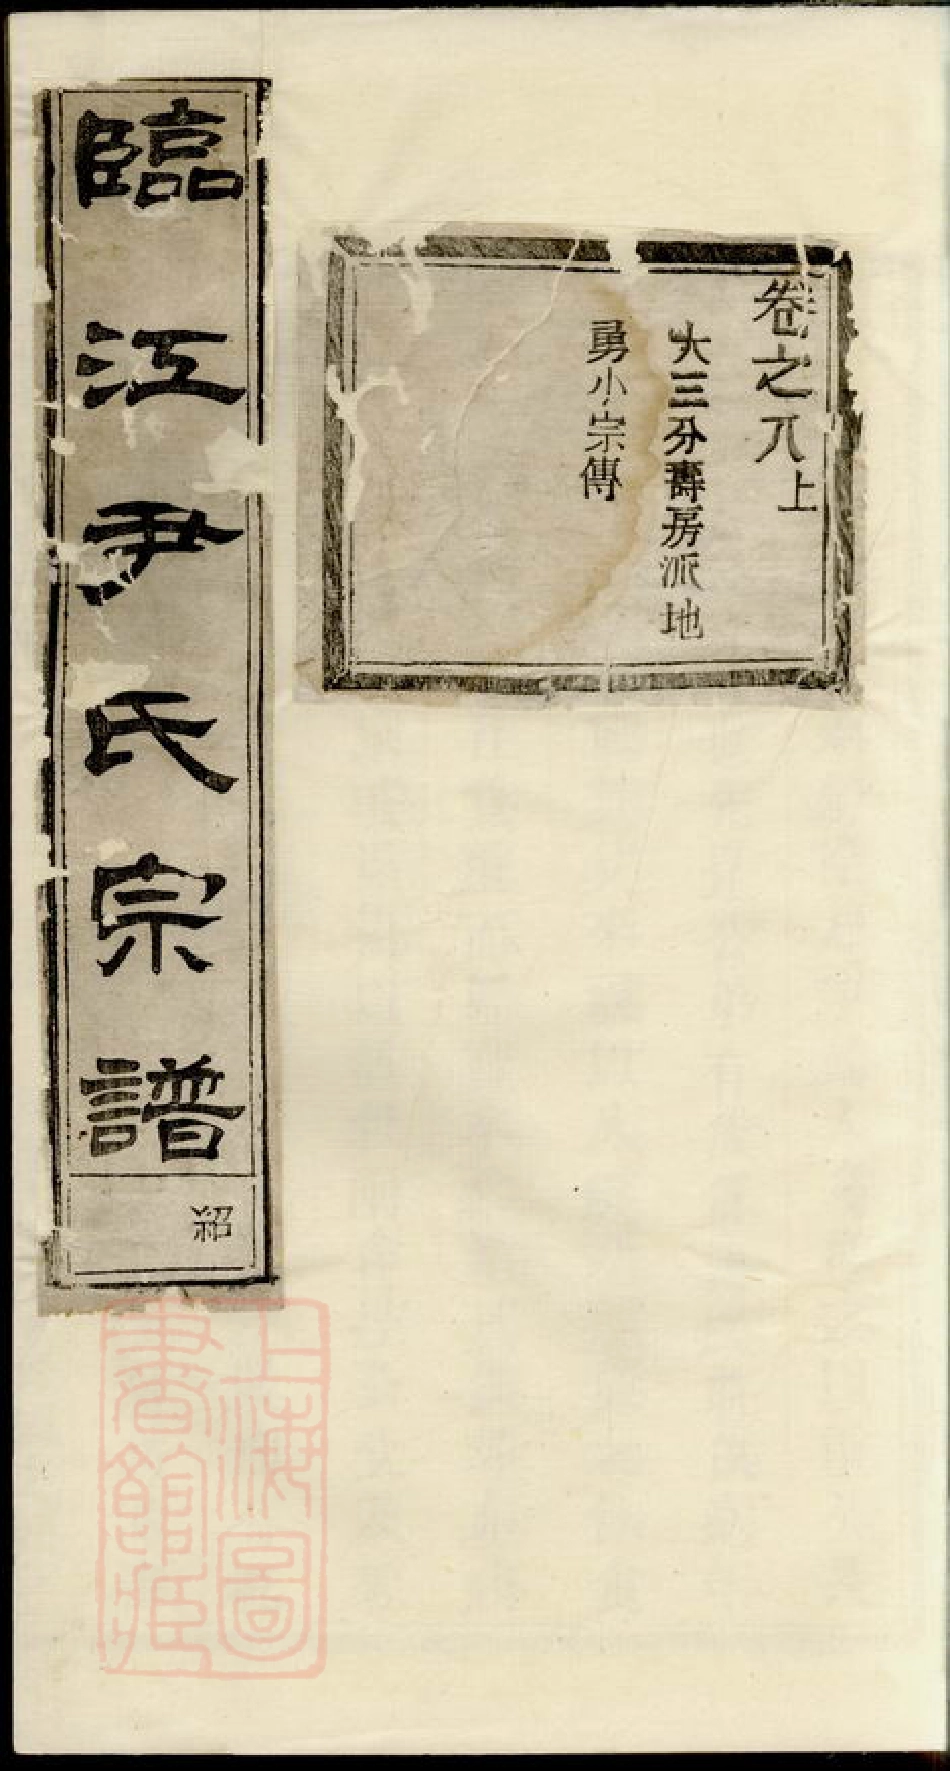 卷之八上
大三分壽房派地
勇小宗傳
臨江尹氏宗譜
紹
上海圖
書館藏